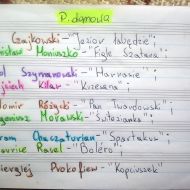 P. domowa
Czajkowski - "Jezioro łabędzie";
Stanisław Moniuszko - "Figle Szatana";
Karol Szymanowski - "Harnasie";
Wojciech Kilar - "Krzesany";
Ludomir Różycki - "Pan Twardowski";
Eugeniusz Morawski - "Świtezianka";
Aram Chaczaturian - "Spartakus";
Maurice Ravel - "Boléro";
Siergiej Prokofiew - "Kopciuszek"